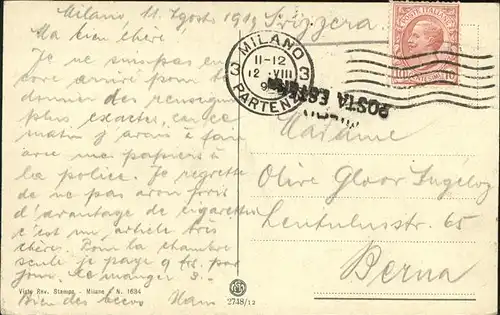 Milano, 11. Agosto 1919 Svizzera
Ma bien chère!
Je ne suis pas en
core arrivé pour te
donner des renseign.
plus exactes, car ce
matin j'avais à faire
avec mes papiers à
à la police. Je regrette
de ne pas avoir
d'avantage de cigarettes
c'est un article très
chère. Pour la chambre
seule je paye 9 frs. par
jour. Le manger
Bien des Hans
Visto Rev. Stampa - Milano - N. 1634
MILANO
3 3
11-12
12 VIII
PARTENZA
POSTE ITALIANE
10 CENTESIMI 10
POSTA ESTERA
MILANO
Madame
Olive Gloor
Lentulusstr. 65
Berna
2748/12